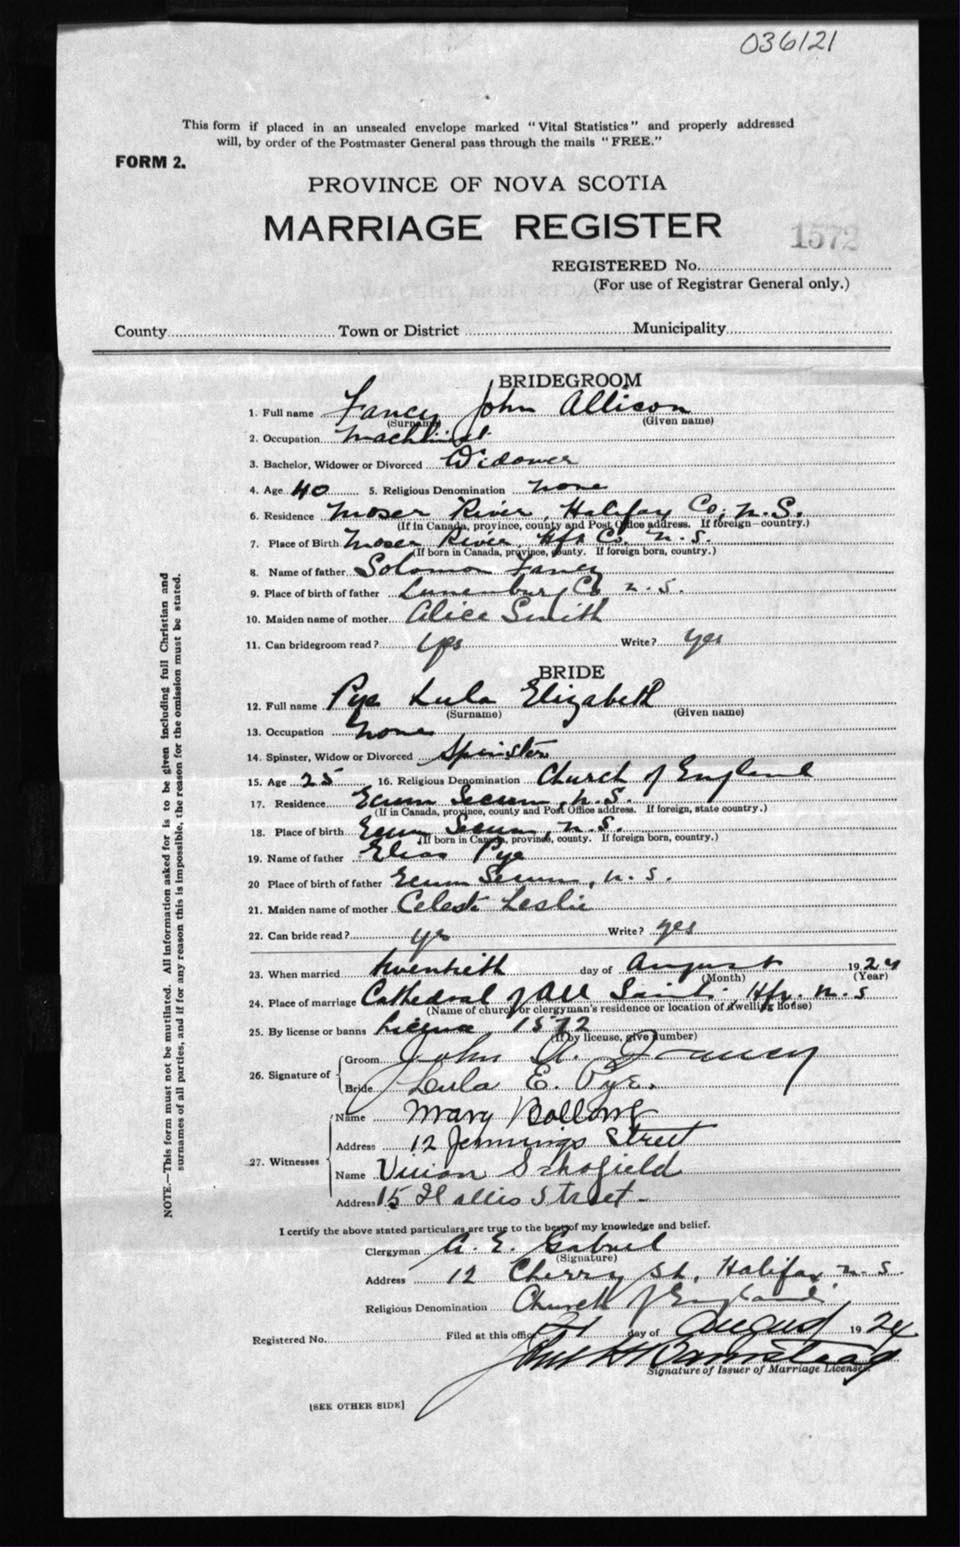 036121
This form if placed in an unsealed envelope marked "Vital Statistics" and properly addressed
will, by order of the Postmaster General pass through the mails "FREE."
FORM 2.
PROVINCE OF NOVA SCOTIA
MARRIAGE REGISTER
1572
REGISTERED No.
(For use of Registrar General only.)
County Town or District Municipality
BRIDEGROOM
1. Full name Fancy John Allison
(Surname) (Given name)
2. Occupation Machinist
3. Bachelor, Widower or Divorced Widower
4. Age 40 5. Religious Denomination none
6. Residence Moser River, Halifax Co, N.S.
(If in Canada, province, county and Post Office address. If foreign—country.)
7. Place of Birth Moser River Hfx Co. N.S.
(If born in Canada, province, county. If foreign born, country.)
8. Name of father Solomon Fancy
9. Place of birth of father Lunenburg Co N.S.
10. Maiden name of mother Alice Smith
11. Can bridegroom read? yes Write? yes
BRIDE
12. Full name Pye Lula Elizabeth
(Surname) (Given name)
13. Occupation None
14. Spinster, Widow or Divorced Spinster
15. Age 25 16. Religious Denomination Church of England
17. Residence Ecum Secum, N.S.
(If in Canada, province, county and Post Office address. If foreign, state country.)
18. Place of birth Ecum Secum, N.S.
(If born in Canada, province, county. If foreign born, country.)
19. Name of father Elias Pye
20 Place of birth of father Ecum Secum, N.S.
21. Maiden name of mother Celeste Leslie
22. Can bride read? yes Write? yes
23. When married twentieth day of August 1924
(Month) (Year)
24. Place of marriage Cathedral of All Saints, Hfx. N.S
(Name of church or clergyman's residence or location of dwelling house)
25. By license or banns License, 1572
(If by license, give number)
26. Signature of
Groom John A. Fancy
Bride Lula E. Pye.
27. Witnesses
Name Mary Bollong
Address 12 Jennings Street
Name Vivian Schofield
Address 15 Hollis Street
I certify the above stated particulars are true to the best of my knowledge and belief.
Clergyman A. E. Gabriel
(Signature)
Address 12 Cherry St, Halifax, N.S.
Religious Denomination Church of England
Registered No. Filed at this office 21 day of August 1924
Signature of Issuer of Marriage Licenses.
[SEE OTHER SIDE]
NOTE.—This form must not be mutilated. All information asked for is to be given including full Christian and
surnames of all parties, and if for any reason this is impossible, the reason for the omission must be stated.